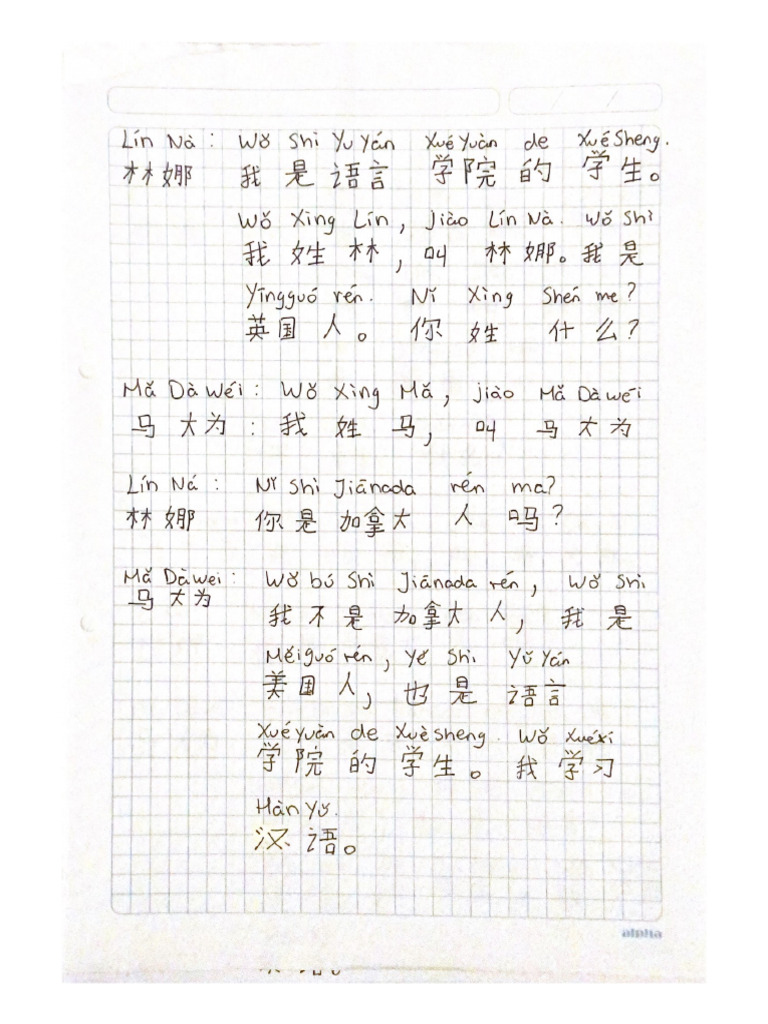 Lín Nà: Wǒ Shì Yu Yán Xué Yuàn de Xué Sheng.
林娜 我是语言学院的学生。
Wǒ Xìng Lín, Jiào Lín Nà. Wǒ Shì
我姓林,叫林娜。我是
Yīngguó rén. Nǐ Xìng Shén me?
英国人。你姓什么?
Mǎ Dà Wéi: Wǒ Xìng Mǎ, jiào Mǎ Dà wéi
马大为:我姓马,叫马大为
Lín Ná: Nǐ Shì Jiānada rén ma?
林娜 你是加拿大人吗?
Mǎ Dàwei: Wǒ bú Shì Jiānada rén, Wǒ Shì
马大为 我不是加拿大人,我是
Měiguó rén, Yě Shì Yǔ Yán
美国人,也是语言
Xué Yuàn de Xuè sheng. Wǒ Xuéxí
学院的学生。我学习
Hàn Yǔ.
汉语。
alpha